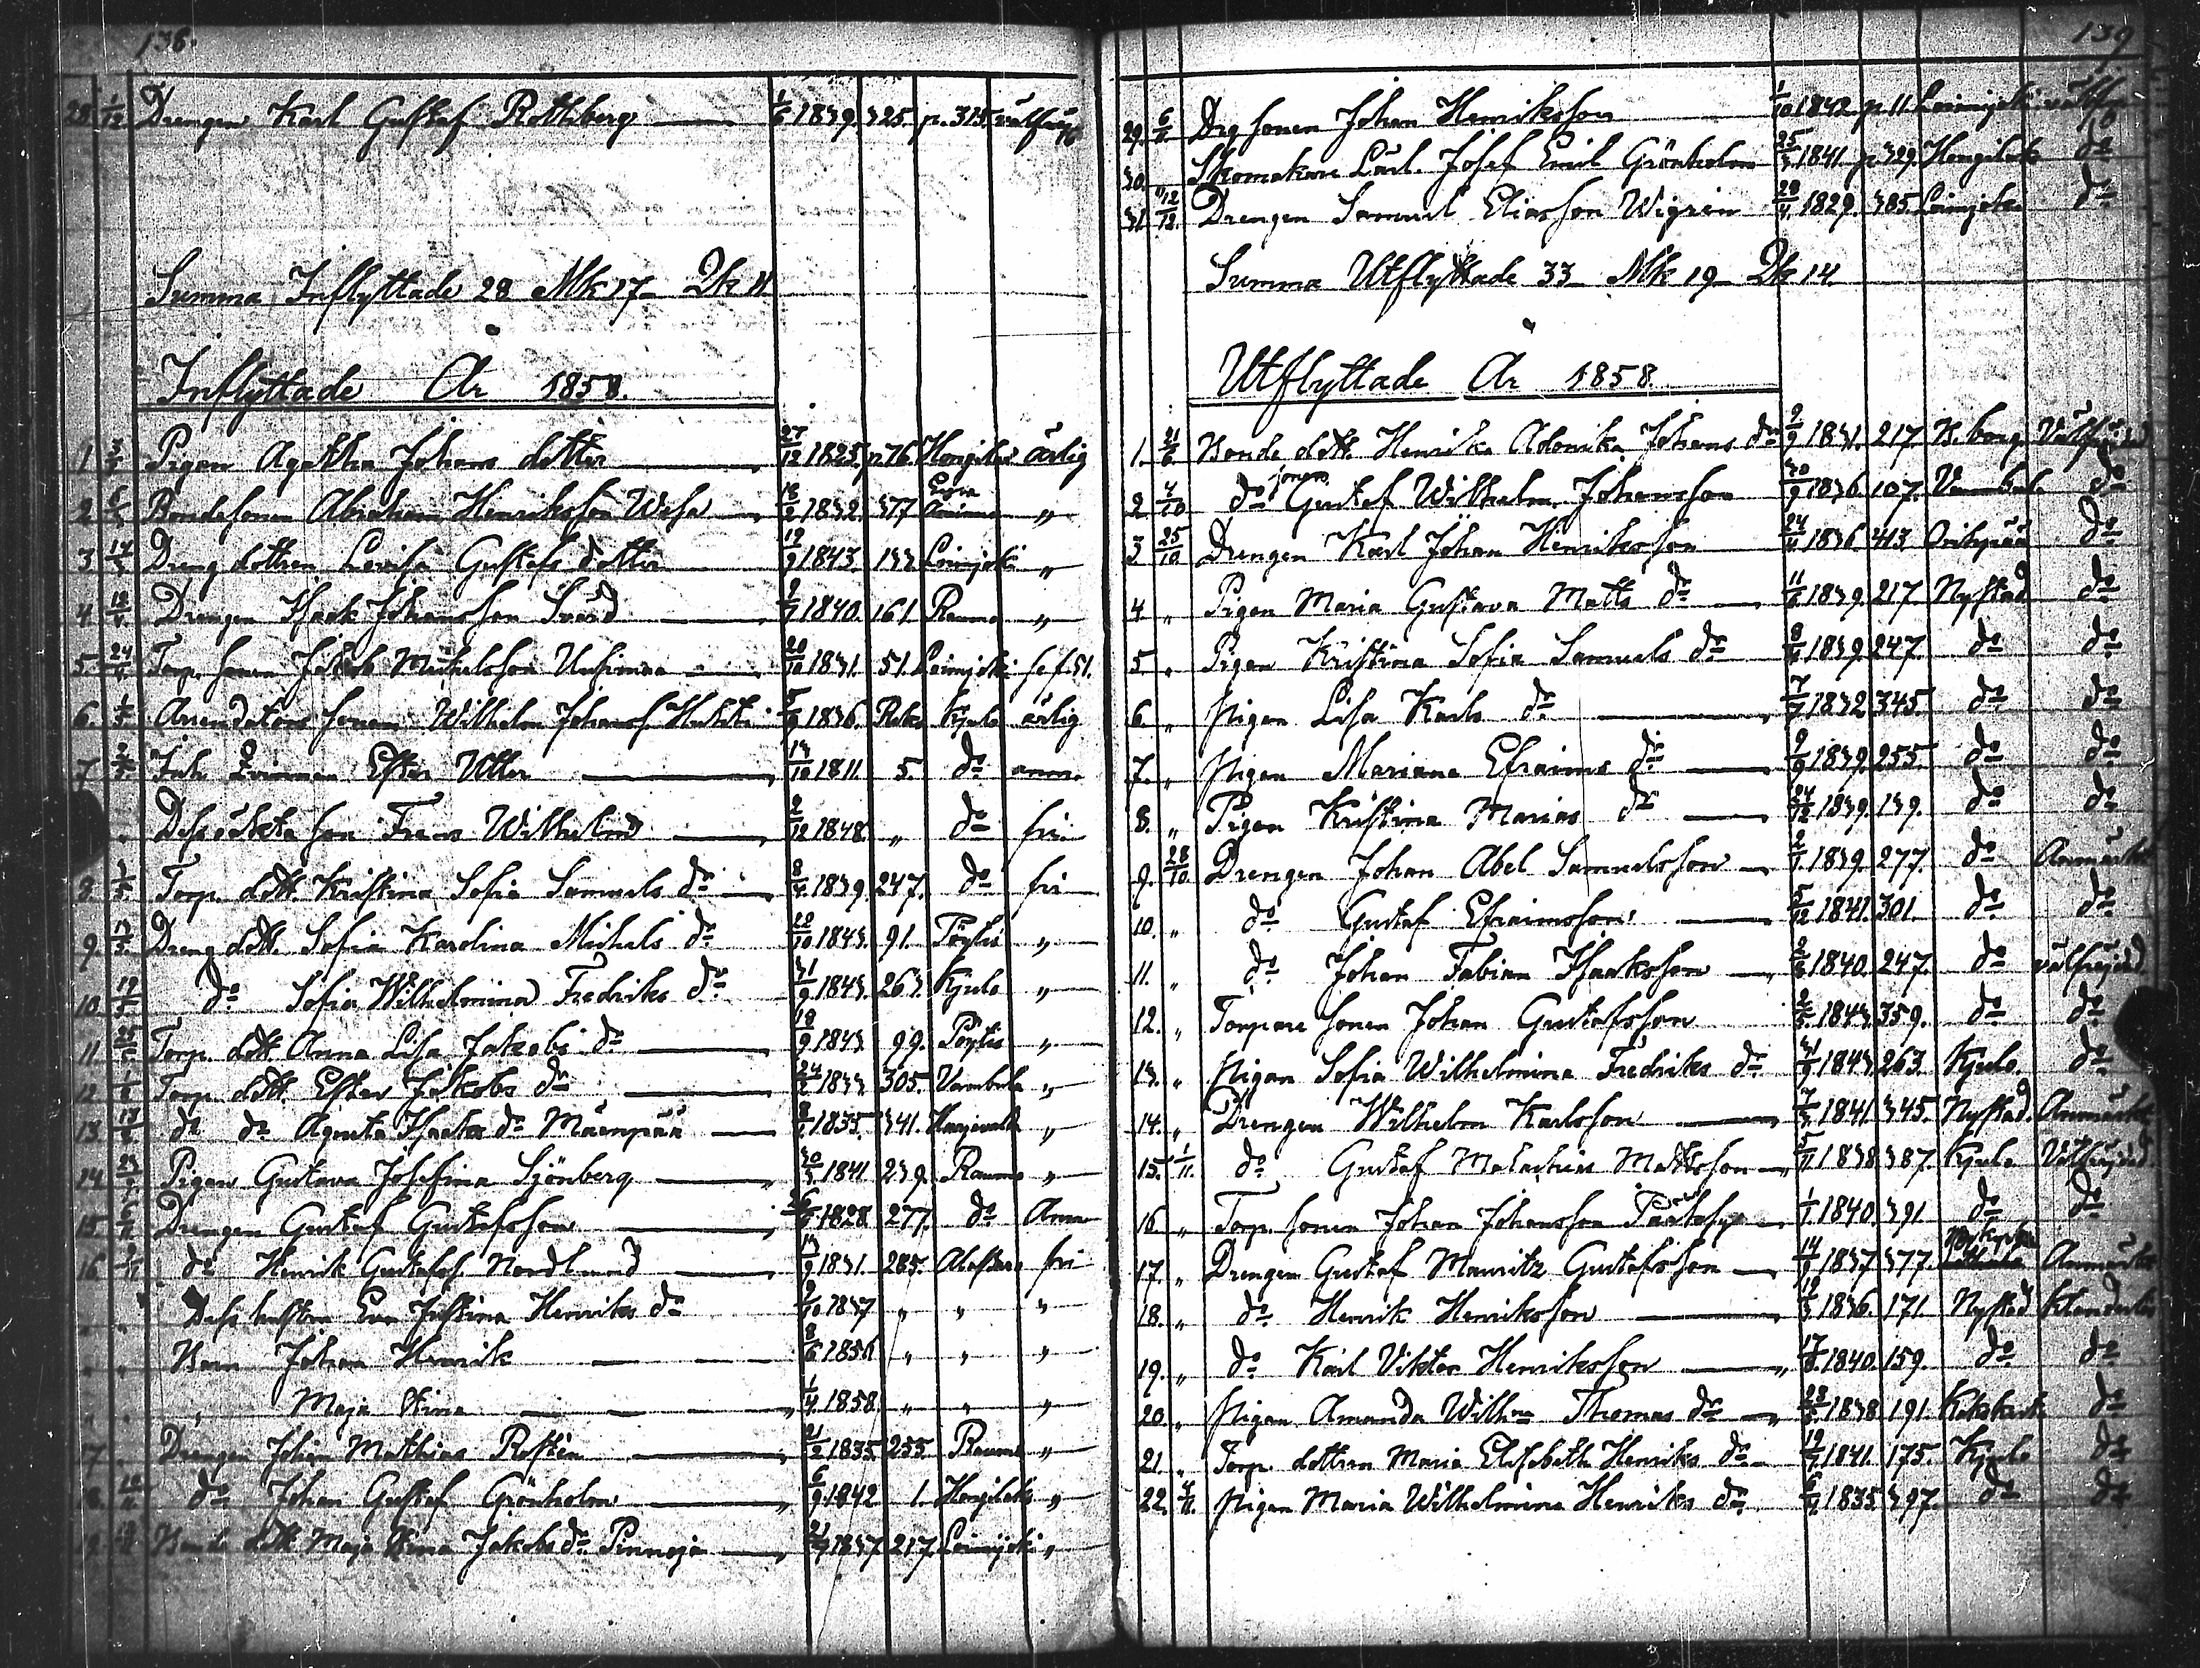 138.
28. 1/12 Drengen Karl Gustaf Rothberg 1/6 1839. 325. p. 315. välfräjd
Summa Inflyttade 28 Mk 17 Qk 11
Inflyttade År 1858.
1 Pigan Agatha Johans dotter 27/12 1825. p. 76. Hongilax ärlig
2 Bondesonen Abraham Henriksson Wesa 18/2 1832. 377 Eura „
3 Dreng dottren Lovisa Gustafs dotter 19/9 1843. 133. Loimijoki „
4 Drengen Isaak Johansson Svärd 1840. 161. Raumo „
5. Torp. sonen Jakob Michelsson Uusimaa 20/10 1831. 51. Loimijoki se f. 51.
6. 1/5 Arrendators sonen Wilhelm Johanss. Huhti 5/9 1836. Kjulo ärlig
7 Inh. Qvinnan Ester Utter 13/10 1811 5. do anm.
Dess oäkta son Frans Wilhelm 2/12 1848. „ do fri
8. 3/5 Torp. dott. Kristina Sofia Samuels dr 8/4 1839. 247. do fri
9 13/5 Dreng dott. Sofia Karolina Michels dr 1843. 91. Pöytis „
10. 19/5 do Sofia Wilhelmina Fredriks dr 31/9 1843. 263. Kjulo „
11. 25/5 Torp. dott. Anna Lisa Jakobs dr 18/9 1843. 99. Pöytis „
12. Torp. dott. Ester Jakobs dr 1833 305. Vambula „
13. do do Agneta Isaaks dr Mäenpää 1835. 341. Harjavalta „
14. Pigan Gustava Josefina Sjönberg 30/3 1841 239. Raumo „
15. Drengen Gustaf Gustafsson 1828. 277. do Anm
16 do Henrik Gustafss. Nordlund 13/9 1831. 285. Alastaro fri
Dess hustru Eva Justina Henriks dr 2/10 1837 „ „ „
Barn Johan Henrik 8/6 1856 „ „ „
„ Maja Stina 1/4 1858. „ „ „
17 Drengen Johan Mathias Rostén 21/2 1835. 255. Raumo „
18. do Johan Gustaf Grönholm 6/9 1842 1. Honjilaks „
19. Bonde dott. Maja Stina Jakobs dr Pinnoja 1837 217. Loimijoki „
139
29. Drg sonen Johan Henriksson 1/10 1842. p. 11. Loimijoki välfräjd
30. „ Skomakare Lärl. Josef Emil Grönholm 25/3 1841. p. 329. Hongilaks do
31 12/12. Drengen Samuel Eliasson Wigren 28/4 1829. 385. Loimijoki do
Summa Utflyttade 33 Mk 19 Qk 14.
Utflyttade År 1858.
1. 21/6 Bonde dott. Henrika Adonika Johans dr 2/9 1831. 217. B. borg Välfräjd
2. 4/10 do sonen Gustaf Wilhelm Johansson 30/9 1836. 107. Vambula do
3 25/10 Drengen Karl Johan Henriksson 1836. 413 Oripää do
4. „ Pigan Maria Gustava Matts dr 1839. 217. Nystad do
5. „ Pigan Kristina Sofia Samuels dr 8/4 1839. 247. do do
6 „ Pigan Lisa Karls dr 1832 345. do do
7. „ Pigan Mariana Efraims dr 9/9 1839. 255. do do
8. „ Pigan Kristina Marias dr 24/12 1839. 139. do do
9. 28/10 Drengen Johan Abel Samuelsson 2/1. 1839. 277. do Anmärkt
10. „ do Gustaf Efraimsson 5/12 1841. 301. do do
11. „ do Johan Fabian Isaksson 1840. 247. do välfräjd
12. „ Torpare sonen Johan Gustafsson 2/5. 1843. 359. do do
13. „ Pigan Sofia Wilhelmina Fredriks dr 31/9 1843. 263. Kjulo. do
14. „ Drengen Wilhelm Karlsson 1841. 345. Nystad. Anmärkt
15. 1/11. do Gustaf Malachias Mattsson 5/11 1838. 387. Kjulo Välfräjd
16. „ Torp. sonen Johan Johansson 1/1. 1840. 391 do do
17. „ Drengen Gustaf Mauritz Gustafsson 14/9 1837. 377. Anmärkt
18. „ do Henrik Henriksson 1836. 171. Nystad Klanderlös
19. „ do Karl Viktor Henriksson 17/8. 1840. 159. do do
20. „ Pigan Amanda Wilhna Thomas dr 1838. 191. do
21. „ Torp. dottren Maria Elisabeth Henriks dr 1841. 175. Kjulo do
22. Pigan Maria Wilhelmina Henriks dr 1835. 397. do do